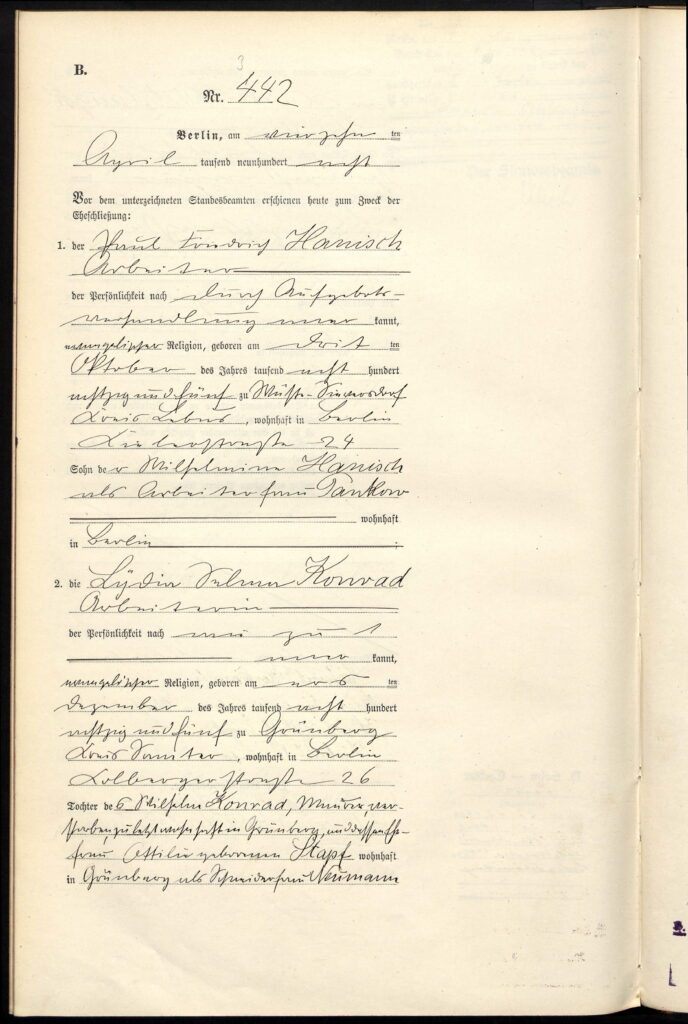 B.
3
Nr. 442
Berlin, am vierzehn ten
April tausend neunhundert acht
Vor dem unterzeichneten Standesbeamten erschienen heute zum Zweck der
Eheschließung:
1. der Paul Friedrich Hanisch
Arbeiter
der Persönlichkeit nach durch Aufgebots-
verhandlung aner kannt,
evangelischer Religion, geboren am dritten
Oktober des Jahres tausend acht hundert
achtzig und fünf zu Wüste-Sieversdorf
Kreis Lebus, wohnhaft in Berlin
24
Sohn der Wilhelmine Hanisch
als Arbeiterfrau Pankow
wohnhaft
in Berlin
2. die Lydia Selma Konrad
Arbeiterin
der Persönlichkeit nach wie zu 1
aner kannt,
evangelischer Religion, geboren am ten
Dezember des Jahres tausend acht hundert
achtzig und fünf zu Grünberg
Kreis Samter, wohnhaft in Berlin
Kolbergerstraße 26
Tochter des Wilhelm Konrad, Maurer, ver-
storben, zuletzt wohnhaft in Grünberg, und dessen Ehe-
frau Ottilie geborenen Stapf wohnhaft
in Grünberg als Schneiderfrau Neumann